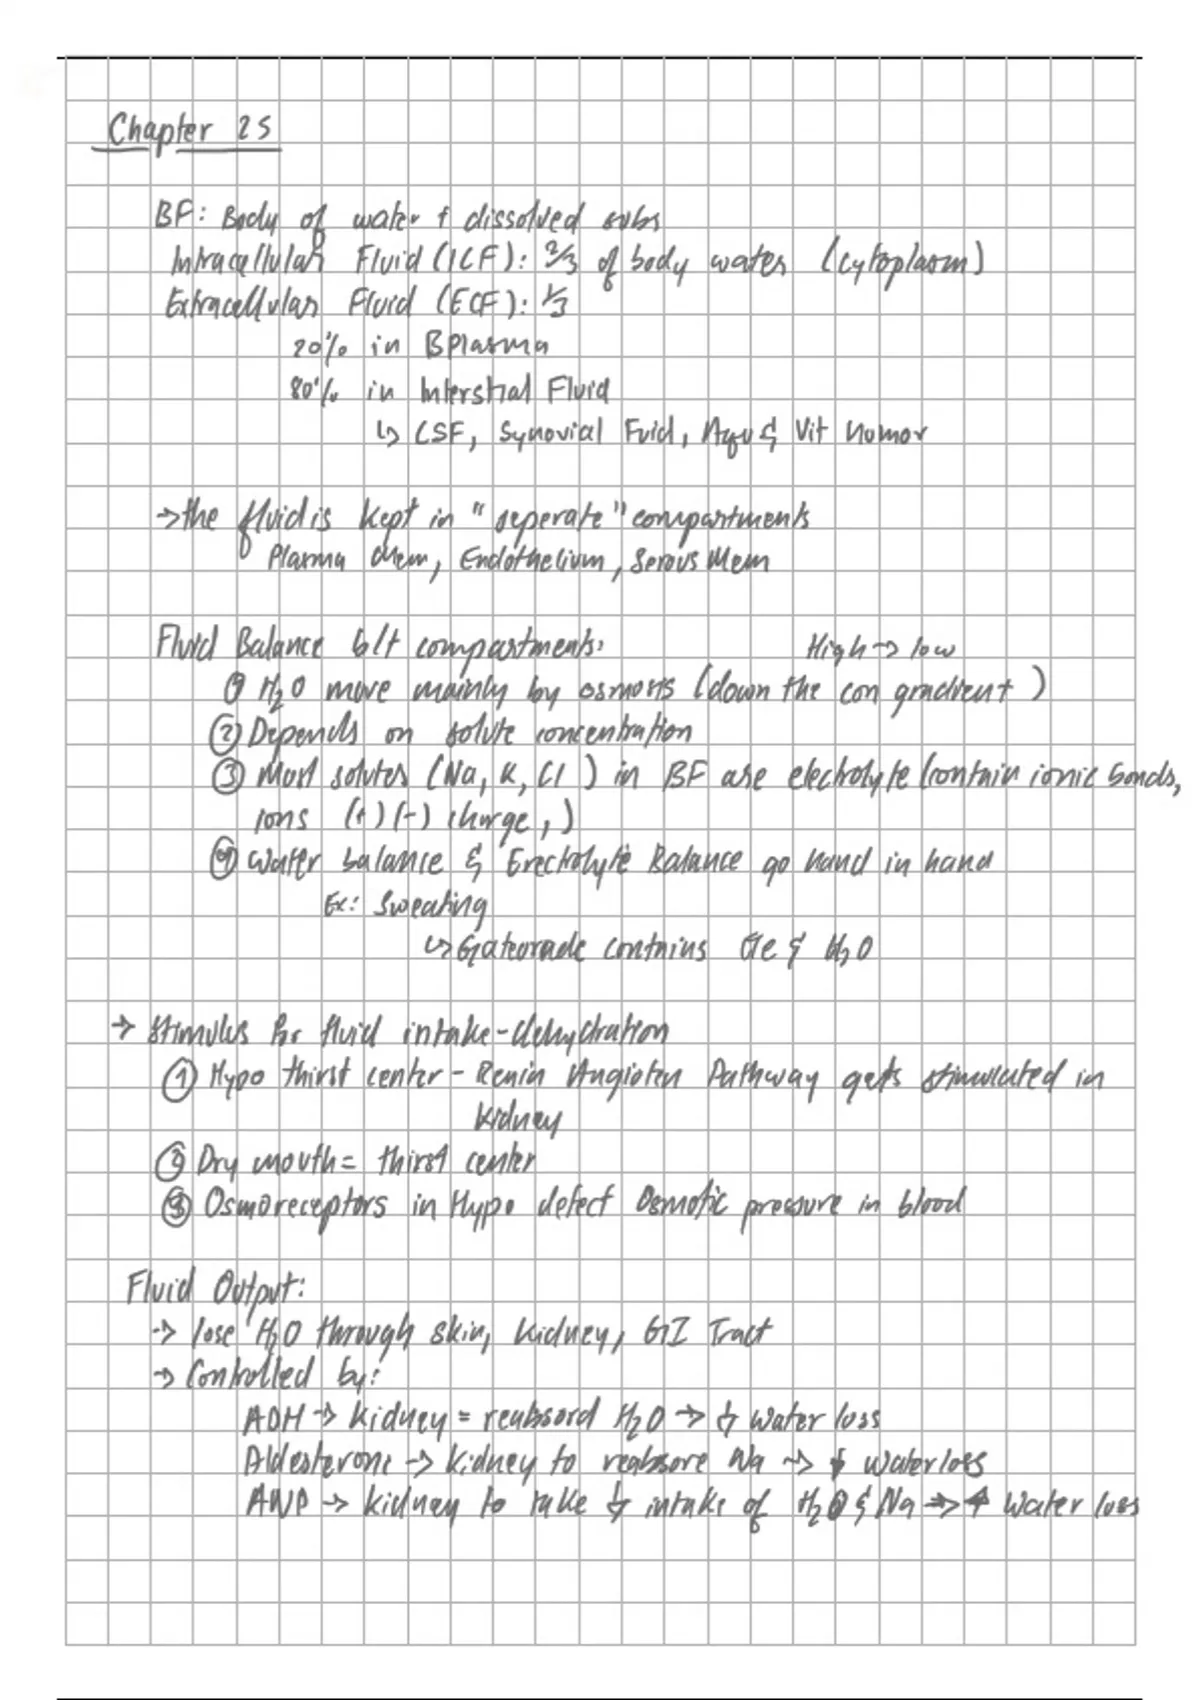 Chapter 25
BF: Body of water & dissolved subs
Intracellular Fluid (ICF): 2/3 of body water (cytoplasm)
Extracellular Fluid (ECF): 1/3
20% in BPlasma
80% in Interstial Fluid
↳ CSF, Synovial Fuid, Aqu & Vit Humor
→ the fluid is kept in "seperate" compartments
Plasma Mem, Endothelium, Serous Mem
Fluid Balance b/t compartments:
High → low
① H2O move mainly by osmosis (down the con gradient)
② Depends on solute concentration
③ Most solutes (Na, K, Cl) in BF are electrolyte (contain ionic bonds,
ions (+) (-) charge,)
④ Water balance & Electrolyte Balance go hand in hand
Ex: Sweating
↳ Gateorade contains & H2O
→ Stimulus for fluid intake - dehydration
① Hypo thirst center - Renin Angioten Pathway gets stimulated in
kidney
② Dry mouth = thirst center
③ Osmoreceptors in Hypo detect Osmotic pressure in blood
Fluid Output:
→ lose H2O through skin, kidney, GI Tract
→ Controlled by:
ADH → kidney = reabsord H2O → ↓ water loss
Aldesterone → kidney to reabsore Na → ↓ water loss
ANP → kidney to take ↓ intake of H2O & Na → ↑ water loss